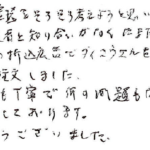 をそろそろ考えようと思い
者と知り合いがなくたま
の折込広告でダイコウさんを
注文しました。
も丁寧で何の問題も
しております。
うございました。